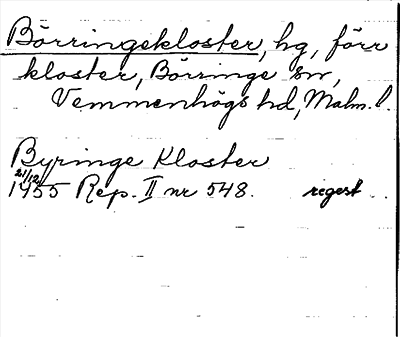 Börringekloster, hg, förr
kloster, Börringe sn,
Vemmenhögs hd, Malm. l.
Byringe Kloster
21/12
1455 Rep. II nr 548. regest